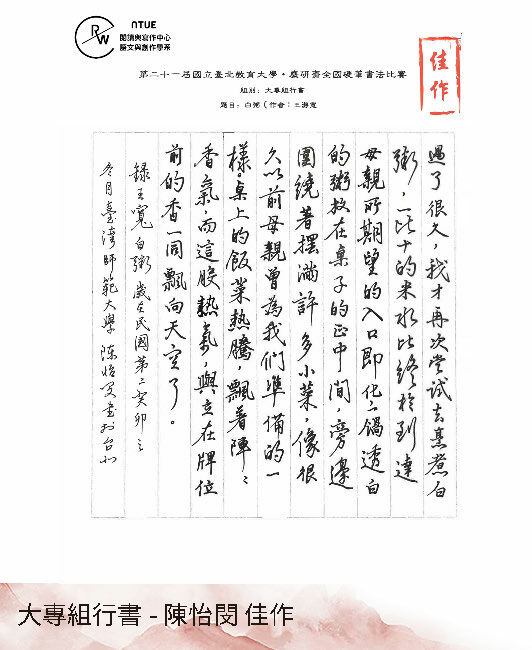 RW
NTUE
閱讀與寫作中心
語文與創作學系
佳作
第二十一屆國立臺北教育大學・慶研齋全國硬筆書法比賽
組別：大專組行書
題目：白粥（作者：王海寬
過了很久，我才再次嘗試去烹煮白
粥，一比十的米水比終於到達
母親所期望的入口即化，一鍋透白
的粥放在桌子的正中間，旁邊
圍繞著擺滿許多小菜，像很
久以前母親曾為我們準備的一
樣。桌上的飯菜熱騰，飄著陣〻
香氣，而這股熱氣，與立在牌位
前的香一同飄向天空了。
錄王寬白粥 歲在民國第二癸卯之
冬月 臺灣師範大學 陳怡閔書於台北
大專組行書 - 陳怡閔 佳作